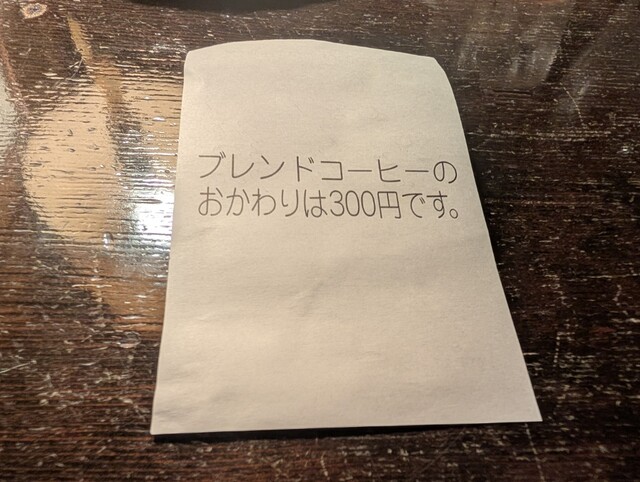 ブレンドコーヒーの
おかわりは300円です。